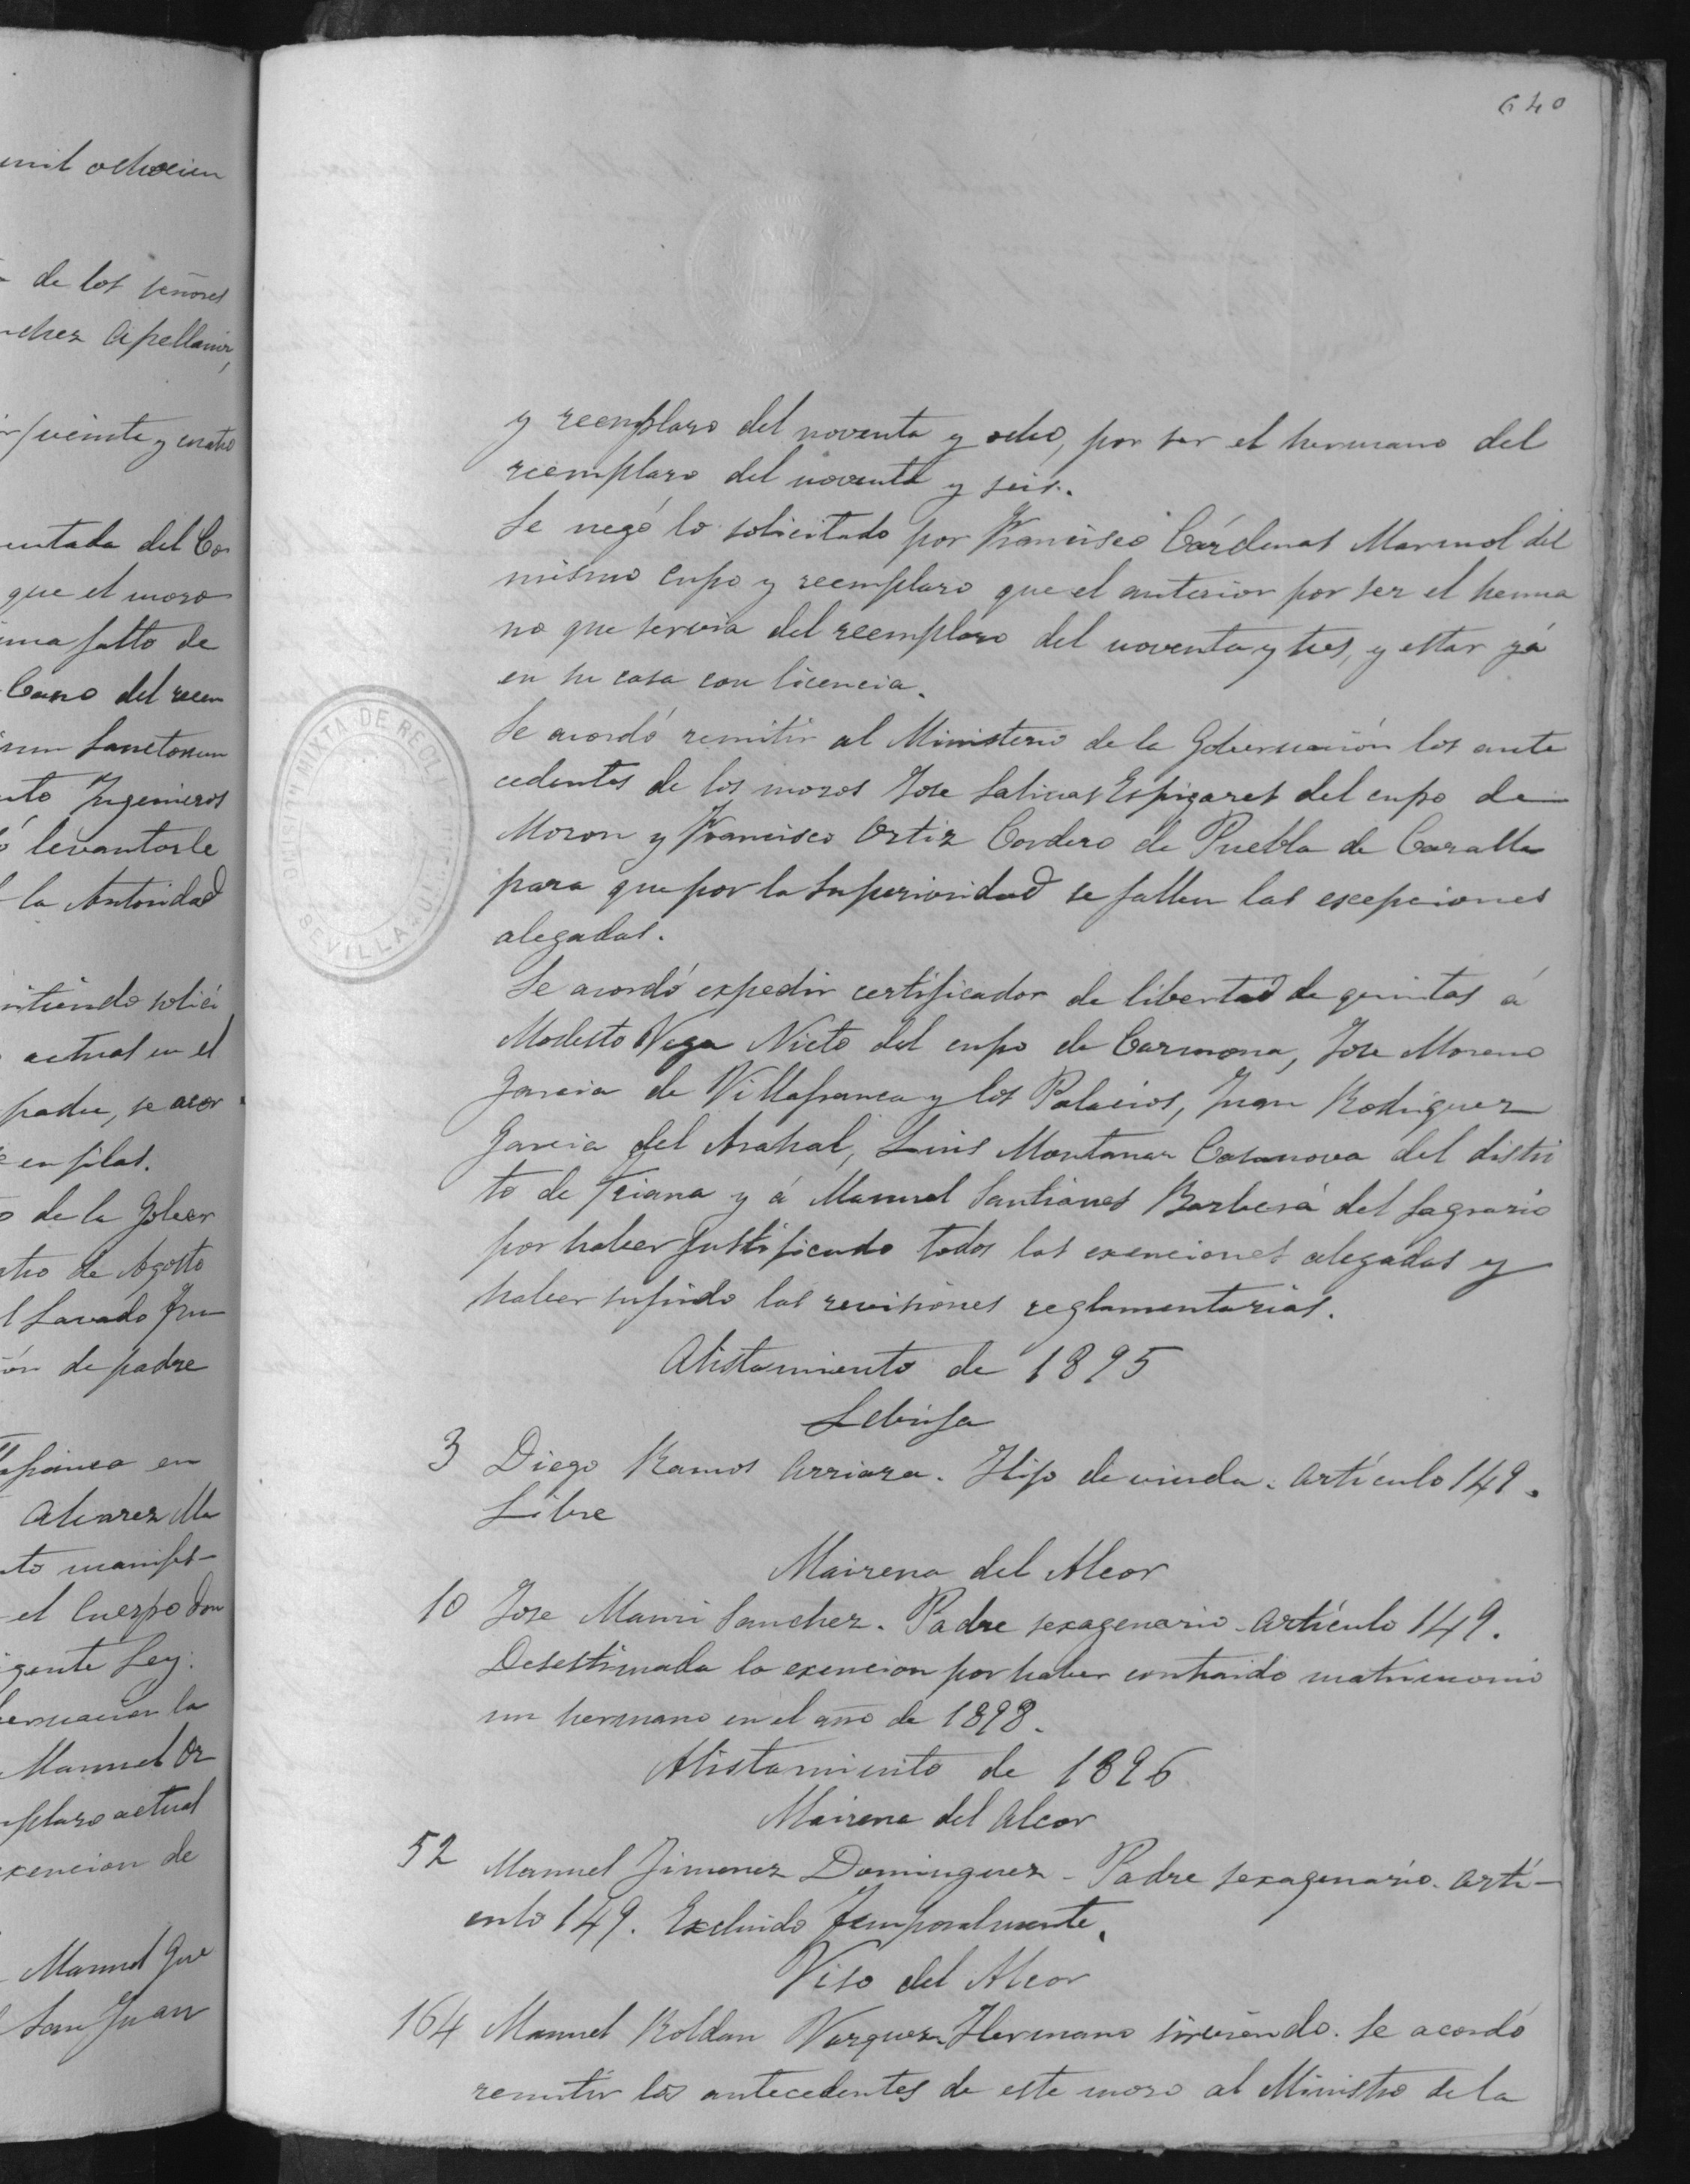 640
mil ochocien
de los señores
chez Apellaniz,
veinte y cuatro
entada del Co
que el mozo
ma falto de
Cano del reem
Sanctorum
Ingenieros
levantarle
la Autoridad
actual en el
padre, se acor
en filas.
de la Gober
de Agosto
Lavado
de padre
en
Alvarez Ma
to manifes-
el Cuerpo don
gente Ley.
la
Manuel Or
plazo actual
xencion de
Manuel
San Juan
y reemplazo del noventa y ocho, por ser el hermano del
reemplazo del noventa y seis.
Se negó lo solicitado por Francisco Cárdenas Marmol del
mismo cupo y reemplazo que el anterior por ser el herma
no que servia del reemplazo del noventa y tres, y estar yá
en su casa con licencia.
Se acordó remitir al Ministerio de la Gobernación los ante
cedentes de los mozos Jose Salinas Espigares del cupo de
Moron y Francisco Ortiz Cordero de Puebla de Cazalla
para que por la Superioridad se fallen las escepciones
alegadas.
Se acordó expedir certificador de libertad de quintas á
Modesto Vega Nieto del cupo de Carmona, Jose Moreno
Garcia de Villafranca y los Palacios, Juan Rodriguez
Garcia del Arahal, Luis Montaner Casanova del distri
to de Triana y á Manuel Santianes Barberá del Sagrario
por haber justificado todos las exenciones alegadas y
haber sufrido las revisiones reglamentarias.
Alistamiento de 1895
Lebrija
3 Diego Ramos Arriaza. Hijo de viuda. Artículo 149.
Libre
Mairena del Alcor
10 Jose Mauri Sanchez. Padre sexagenario. Artículo 149.
Desestimada la exencion por haber contraido matrimonio
un hermano en el año de 1898.
Alistamiento de 1896
Mairena del Alcor
52 Manuel Jimenez Dominguez - Padre sexagenario. Artí-
culo 149. Excluido temporalmente.
Viso del Alcor
164 Manuel Roldan Vazquez. Hermano sirviendo. Se acordó
remitir los antecedentes de este mozo al Ministro de la
MIXTA DE RECLU
SEVILLA